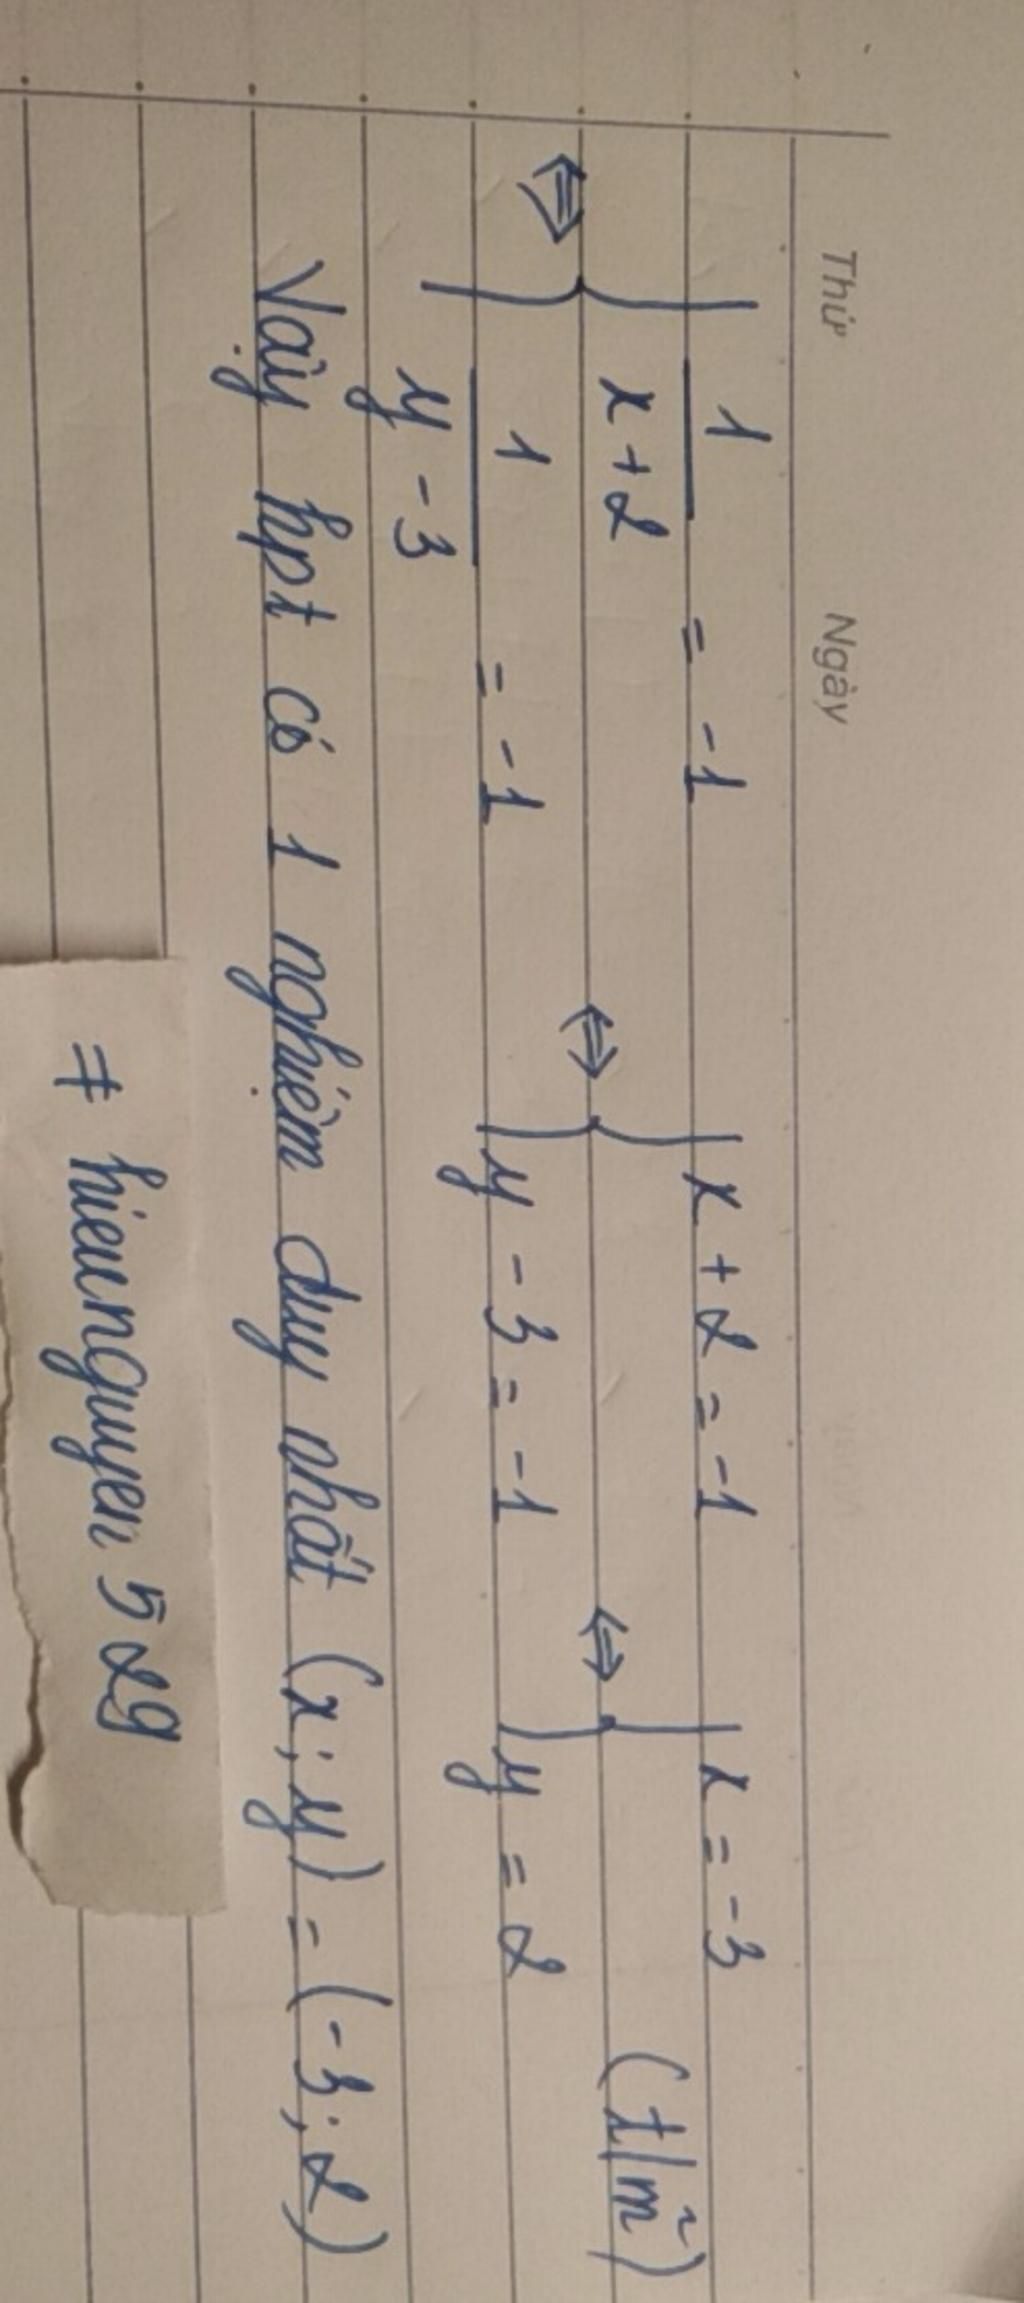 Thứ Ngày
1/(x+2) = -1 ⇔ x+2 = -1 ⇔ x = -3
⇔ { { { (t/m²)
1/(y-3) = -1 y-3 = -1 y = 2
Vậy hpt có 1 nghiệm duy nhất (x;y) = (-3;2)
≠ hieunguyen 529